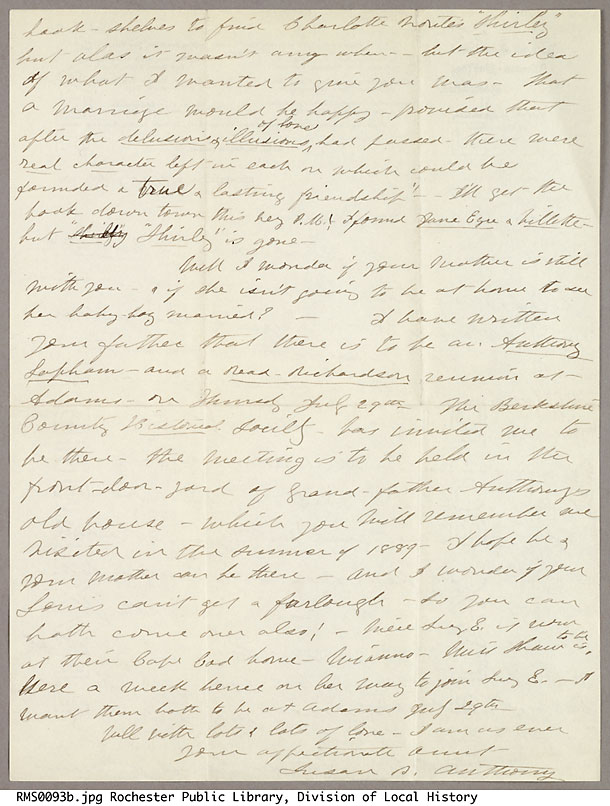 book-shelves to find Charlotte Bronte's "Shirley"
but alas it wasn't any where - but the idea
of what I wanted to give you was - that
a marriage would be happy - provided that
of love
after the delusions & illusions, had passed - there were
real character left in each on which could be
founded a true & lasting friendship" - I'll get the
book down town this very P.M! I found Jane Eyre & Villette -
but "Shirley" is gone -
Well I wonder if your mother is still
with you - & if she isn't going to be at home to see
her baby-boy married? - I have written
your father that there is to be an Anthony
Lapham - and a Read-Richardson reunion at
Adams - on Thursdy July 29th The Berkshire
County Historical Society - has invited me to
be there - the meeting is to be held in the
front-door-yard of grand-father Anthony's
old house - which you will remember we
visited in the summer of 1889 - I hope he &
your mother can be there - and I wonder if your
Louis can't get a farlough - so you can
both come over also! - Niece Lucy E. is now
at their Cape Cod home - Wianno - Miss Shaw is
to be
here a week hence on her way to join Lucy E. - I
want them both to be at Adams July 29th -
Well with lots & lots of love - I am as ever
your affectionate aunt
Susan B. Anthony
RMS0093b.jpg Rochester Public Library, Division of Local History